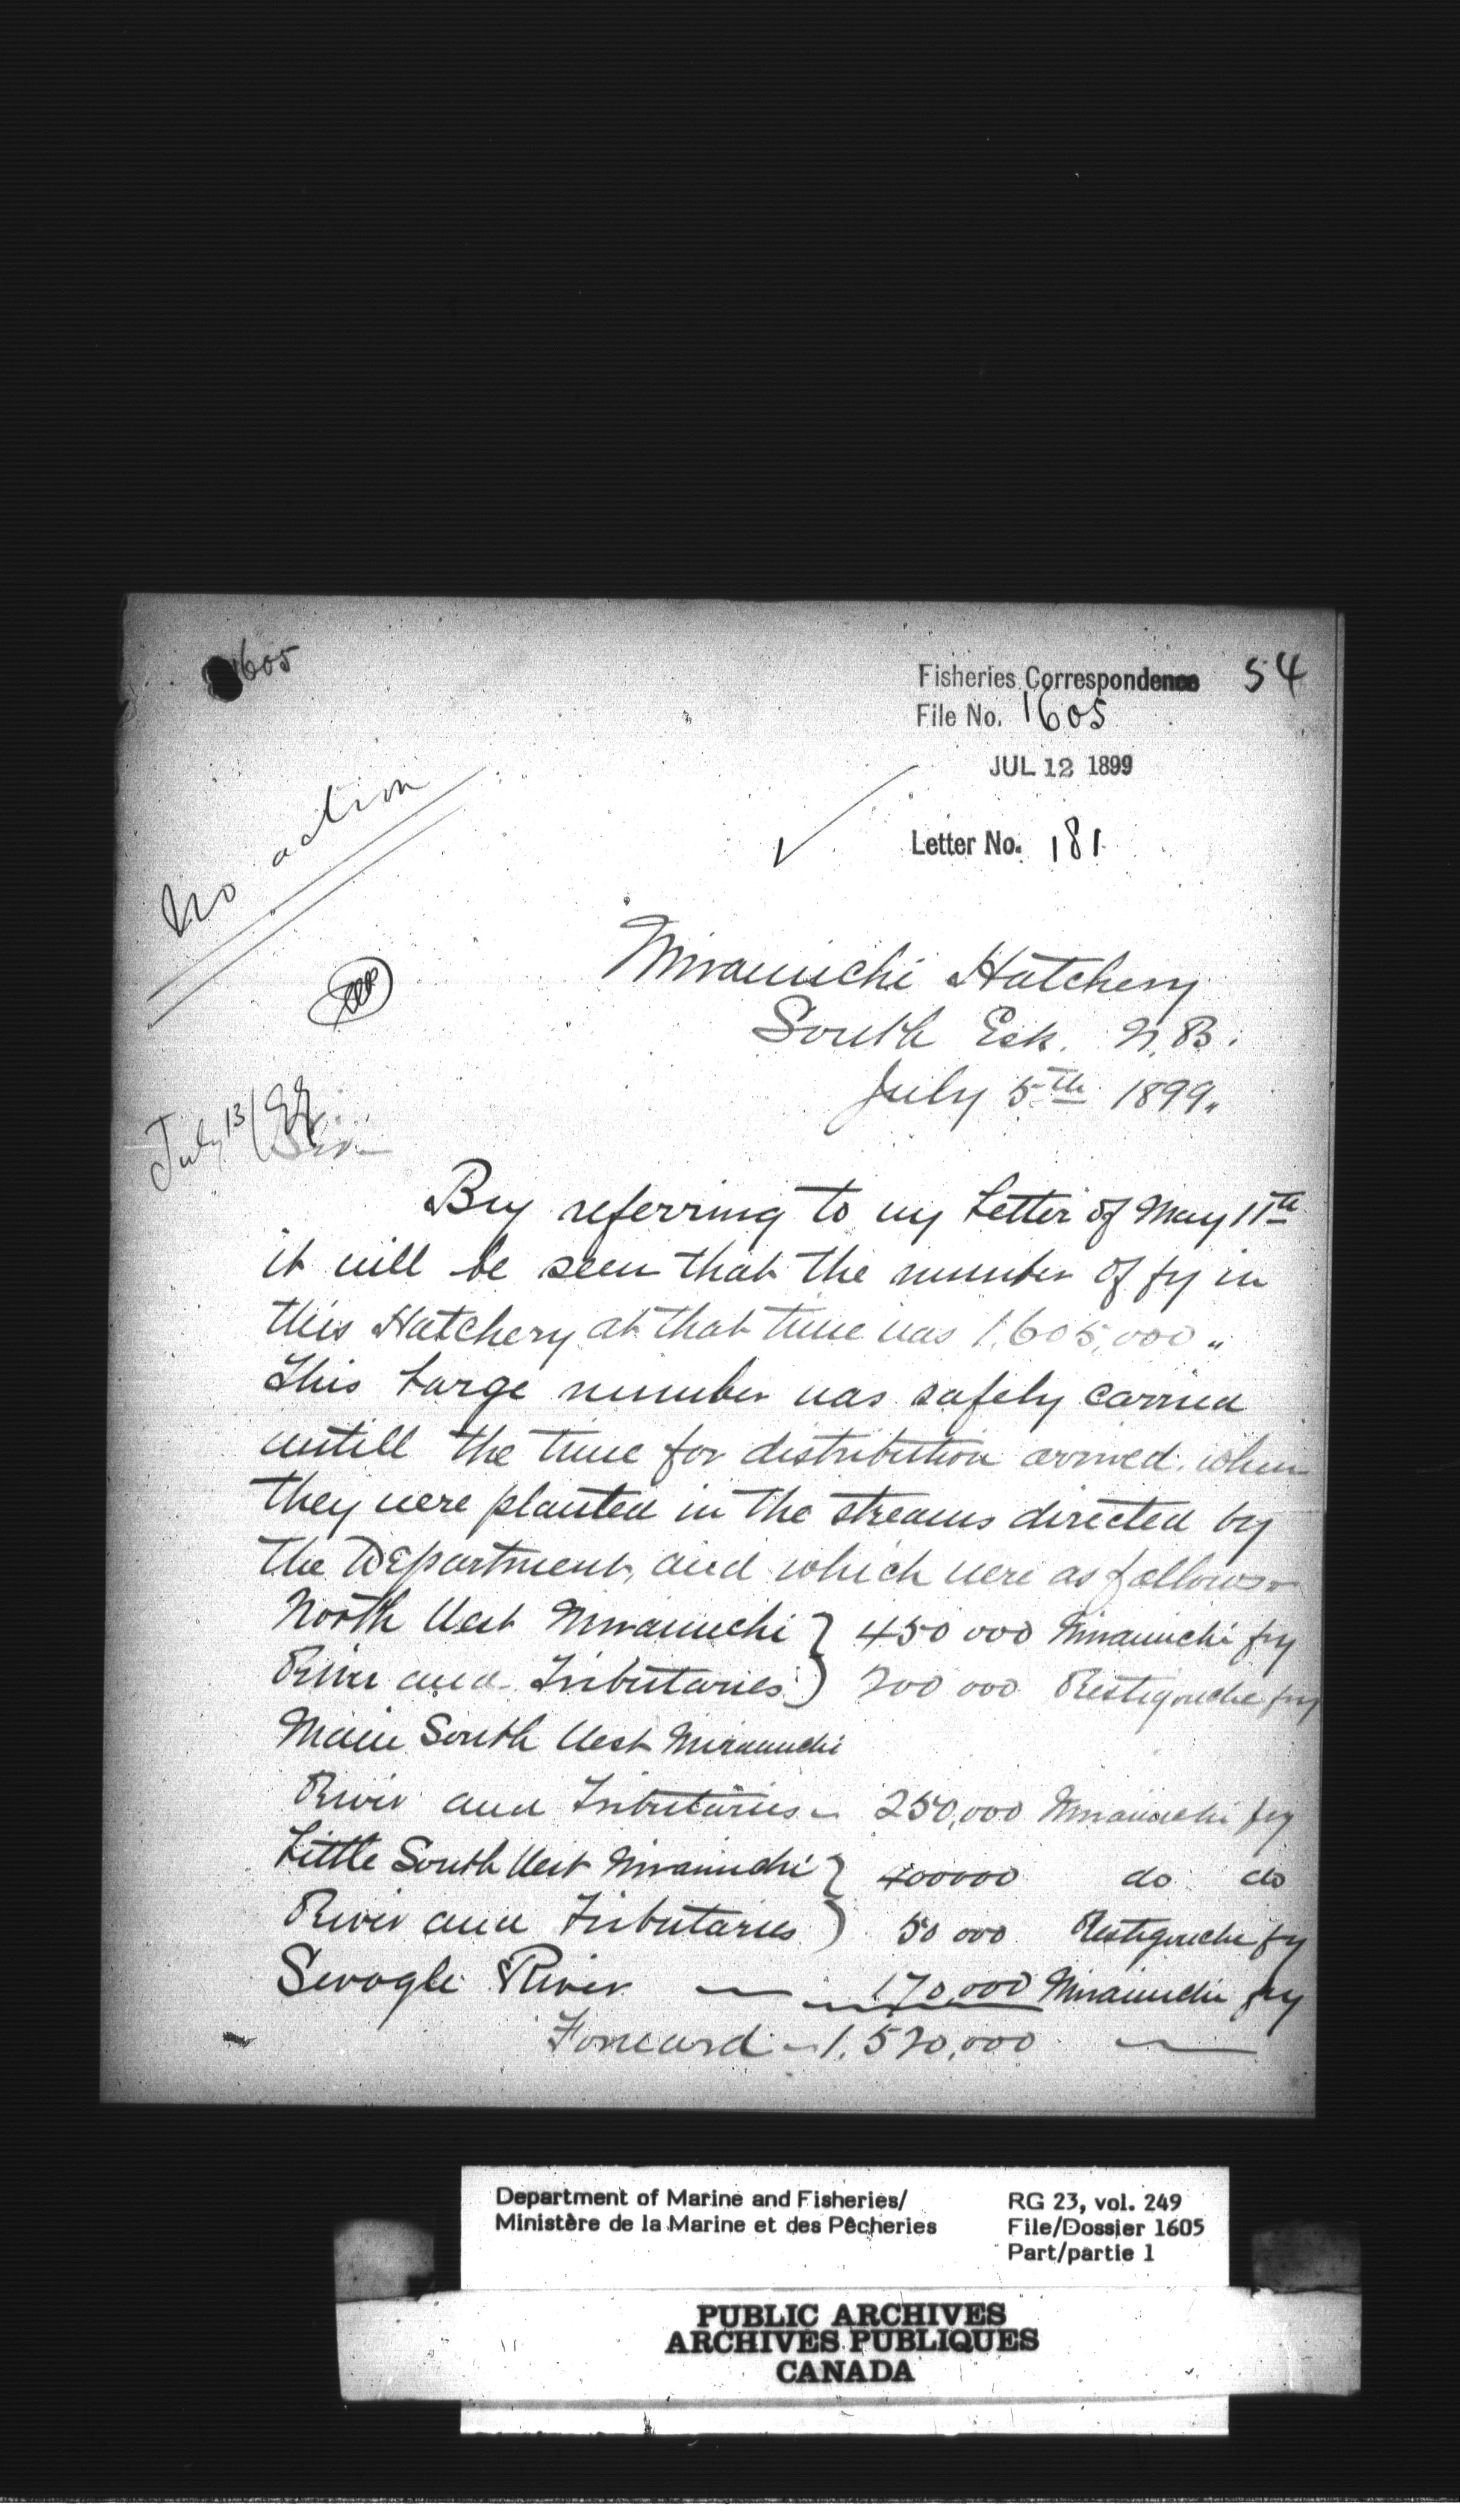 1605
Fisheries Correspondence 54
File No. 1605
JUL 12 1899
Letter No. 181
No action
July 13/99
Miramichi Hatchery
South Esk. N.B.
July 5th 1899.
Sir
By referring to my Letter of May 11th
it will be seen that the number of fry in
this Hatchery at that time was 1,605,000 "
This Large number was safely carried
untill the time for distribution arrived. when
they were planted in the streams directed by
the Department, and which were as follows
North West Miramichi } 450 000 Miramichi fry
River and Tributaries } 200 000 Restigouche fry
Main South West Miramichi
River and Tributaries 250,000 Miramichi fry
Little South West Miramichi } 400000 do do
River and Tributaries } 50 000 Restigouche fry
Sevogle River — 170,000 Miramichi fry
Forward - 1,520,000 —
Department of Marine and Fisheries/
Ministère de la Marine et des Pêcheries
RG 23, vol. 249
File/Dossier 1605
Part/partie 1
PUBLIC ARCHIVES
ARCHIVES PUBLIQUES
CANADA